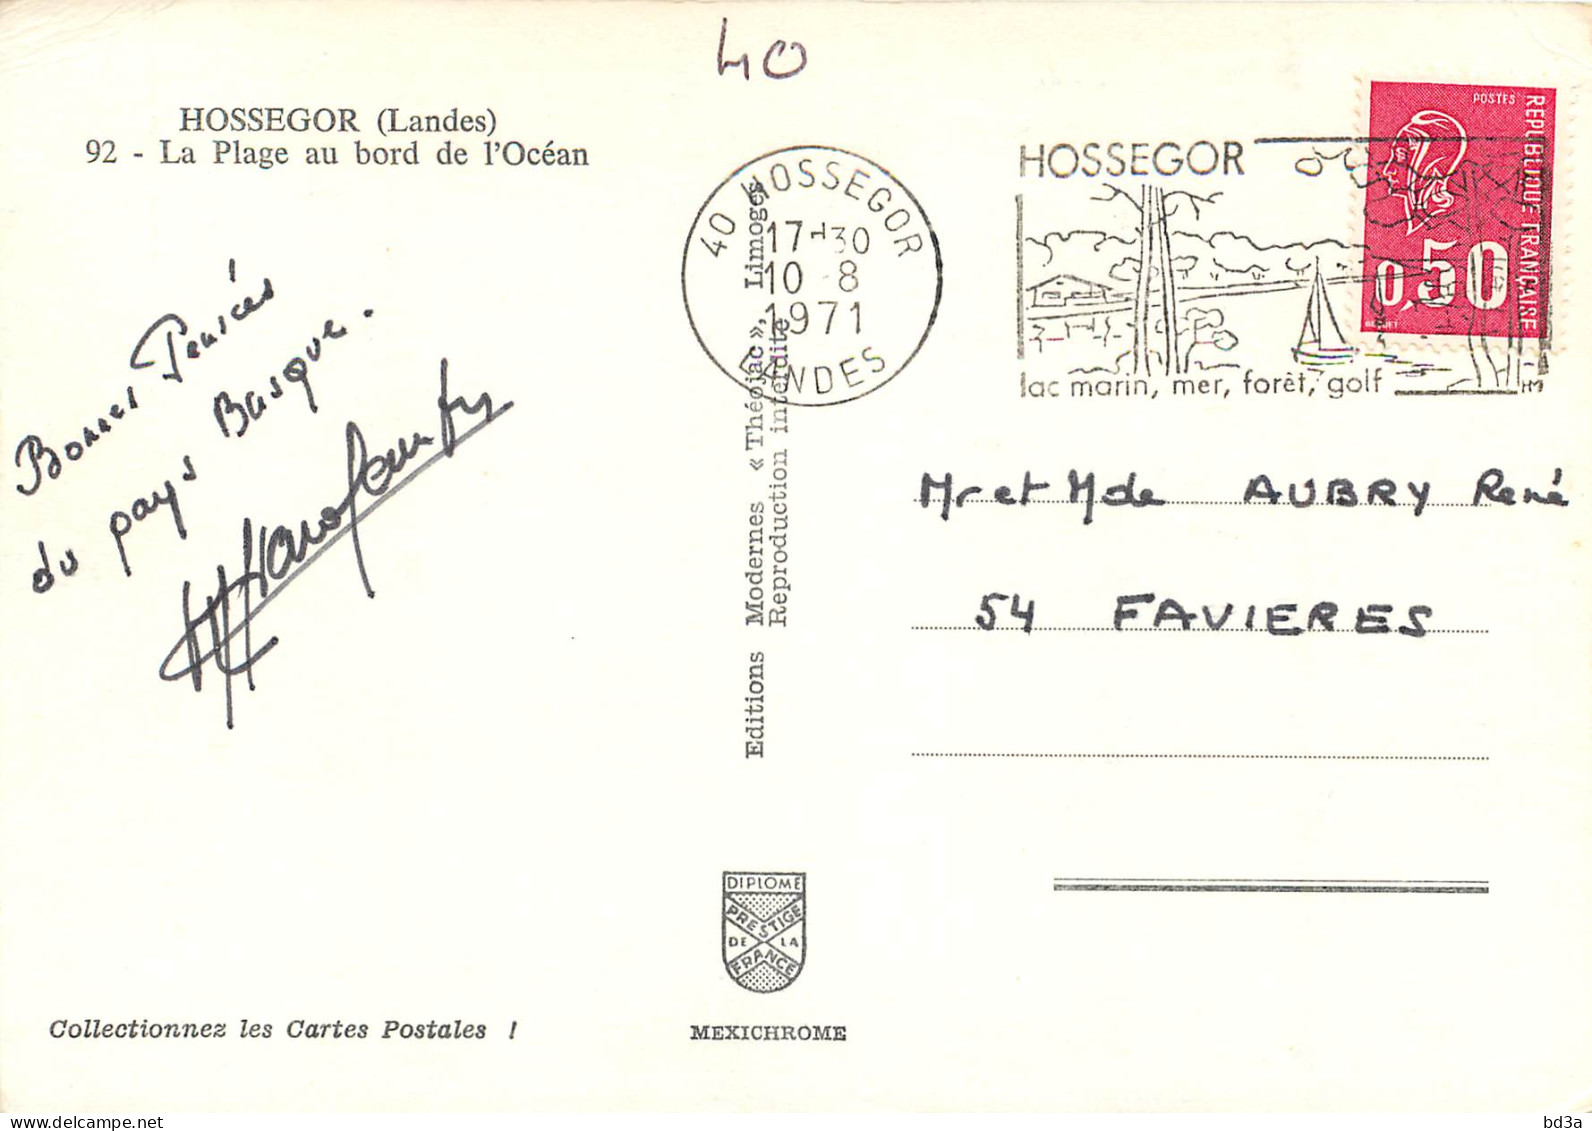 40
HOSSEGOR (Landes)
92 - La Plage au bord de l'Océan
40 HOSSEGOR
17-30
10-8
1971
LANDES
HOSSEGOR
lac marin, mer, forêt, golf
HM
POSTES
REPUBLIQUE FRANÇAISE
0,50
BEQUET
Bonnes Pensées
du pays Basque.
Editions Modernes « Théojac », Limoges
Reproduction interdite
Mr et Mde AUBRY René
54 FAVIERES
DIPLOME
PRESTIGE
DE LA
FRANCE
Collectionnez les Cartes Postales !
MEXICHROME
https://www.delcampe.net
bd3a